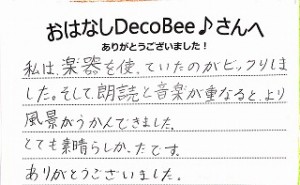 おはなしDecoBee♪さんへ
ありがとうございました！
私は、楽器を使っていたのがビックリしま
した。そして、朗読と音楽が重なると、より
風景がうかんできました。
とても素晴らしかったです。
ありがとうございました。